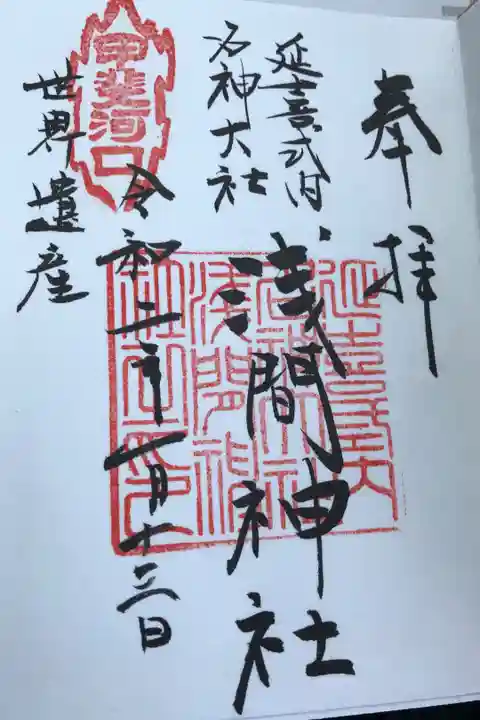 奉拝
延喜式内
名神大社
浅間神社
甲斐河口
令和二年一月十三日
世界遺産